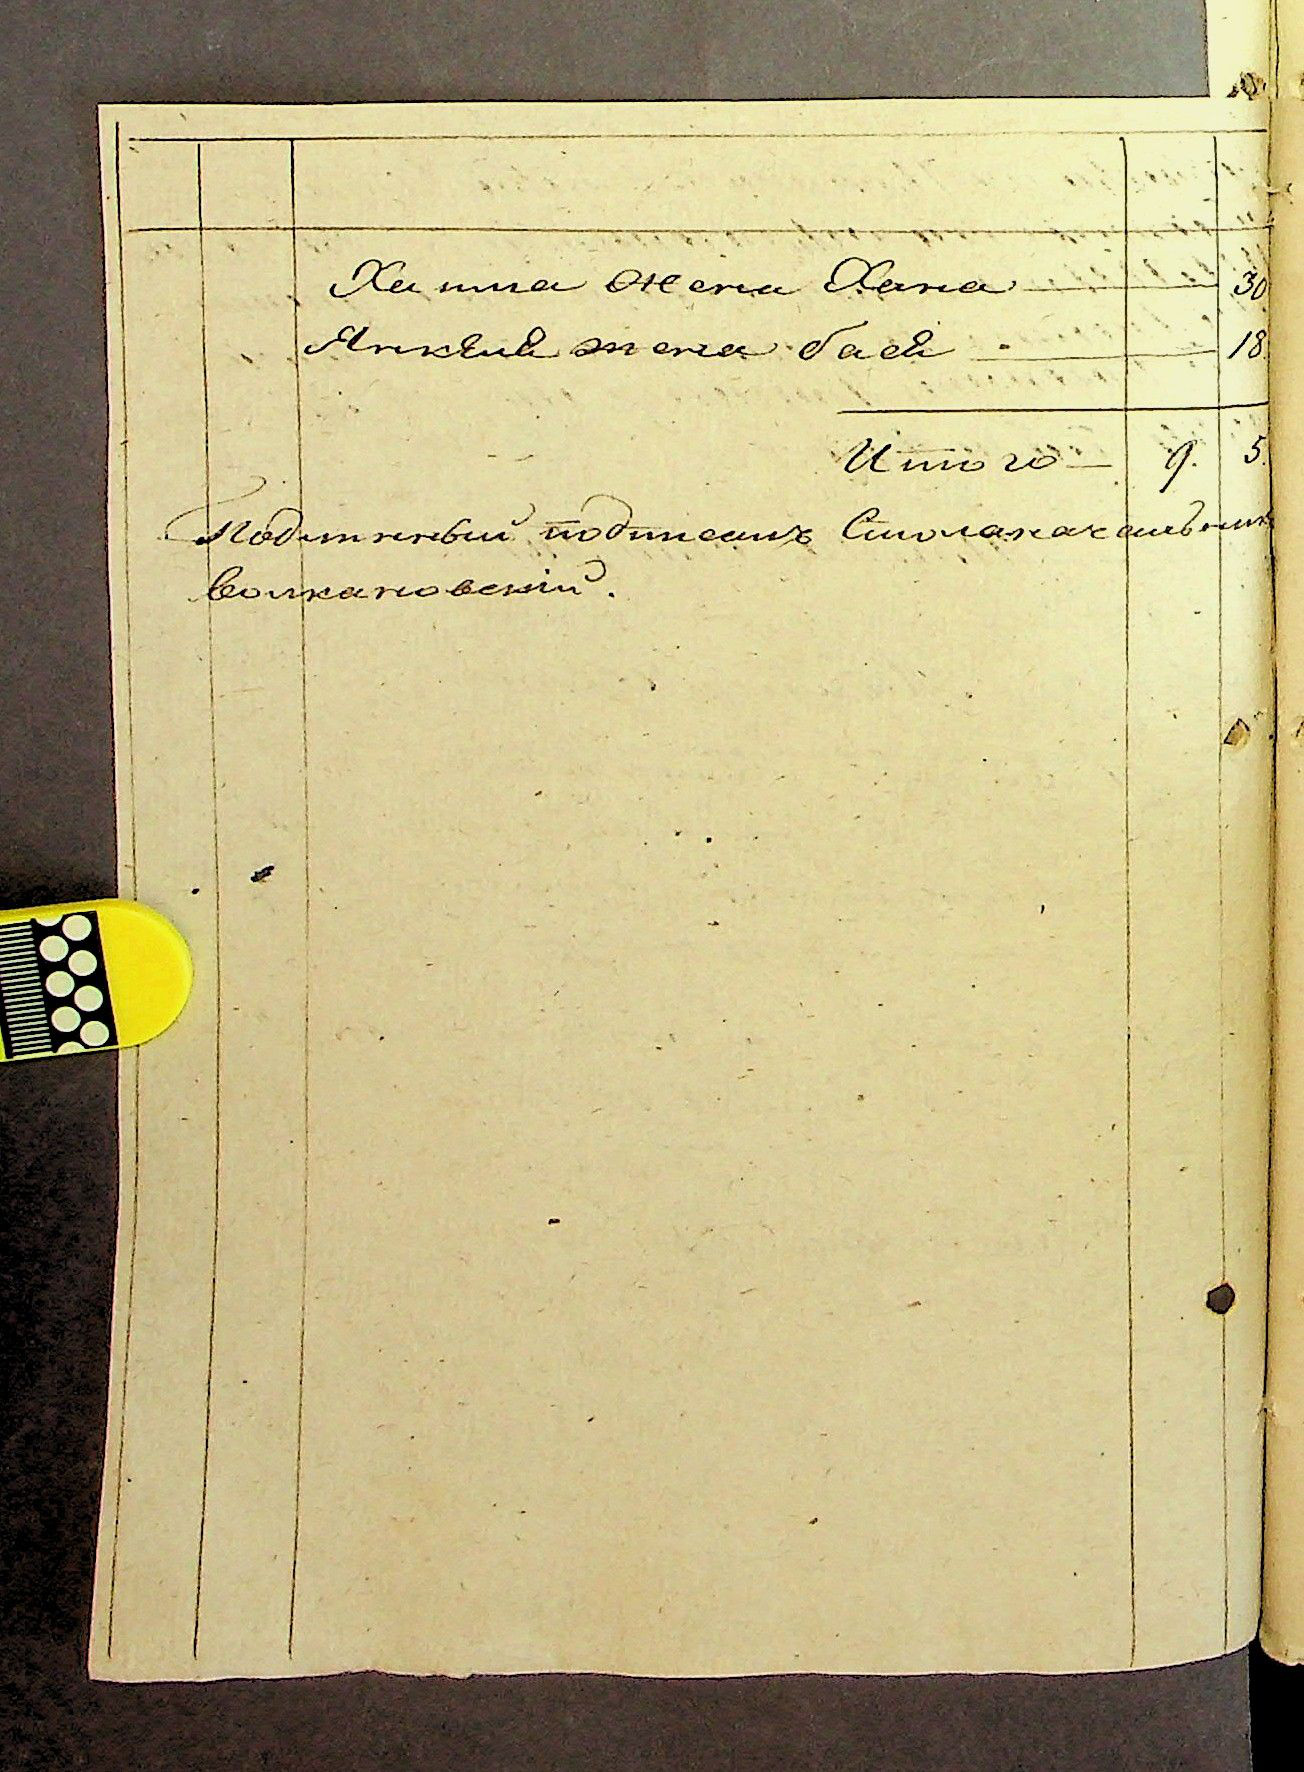 Хаима жена Хана 30
Янкеля жена Бася 18
Итого 9. 5.
Подлинный подписалъ Столоначальникъ
Волкановскій.